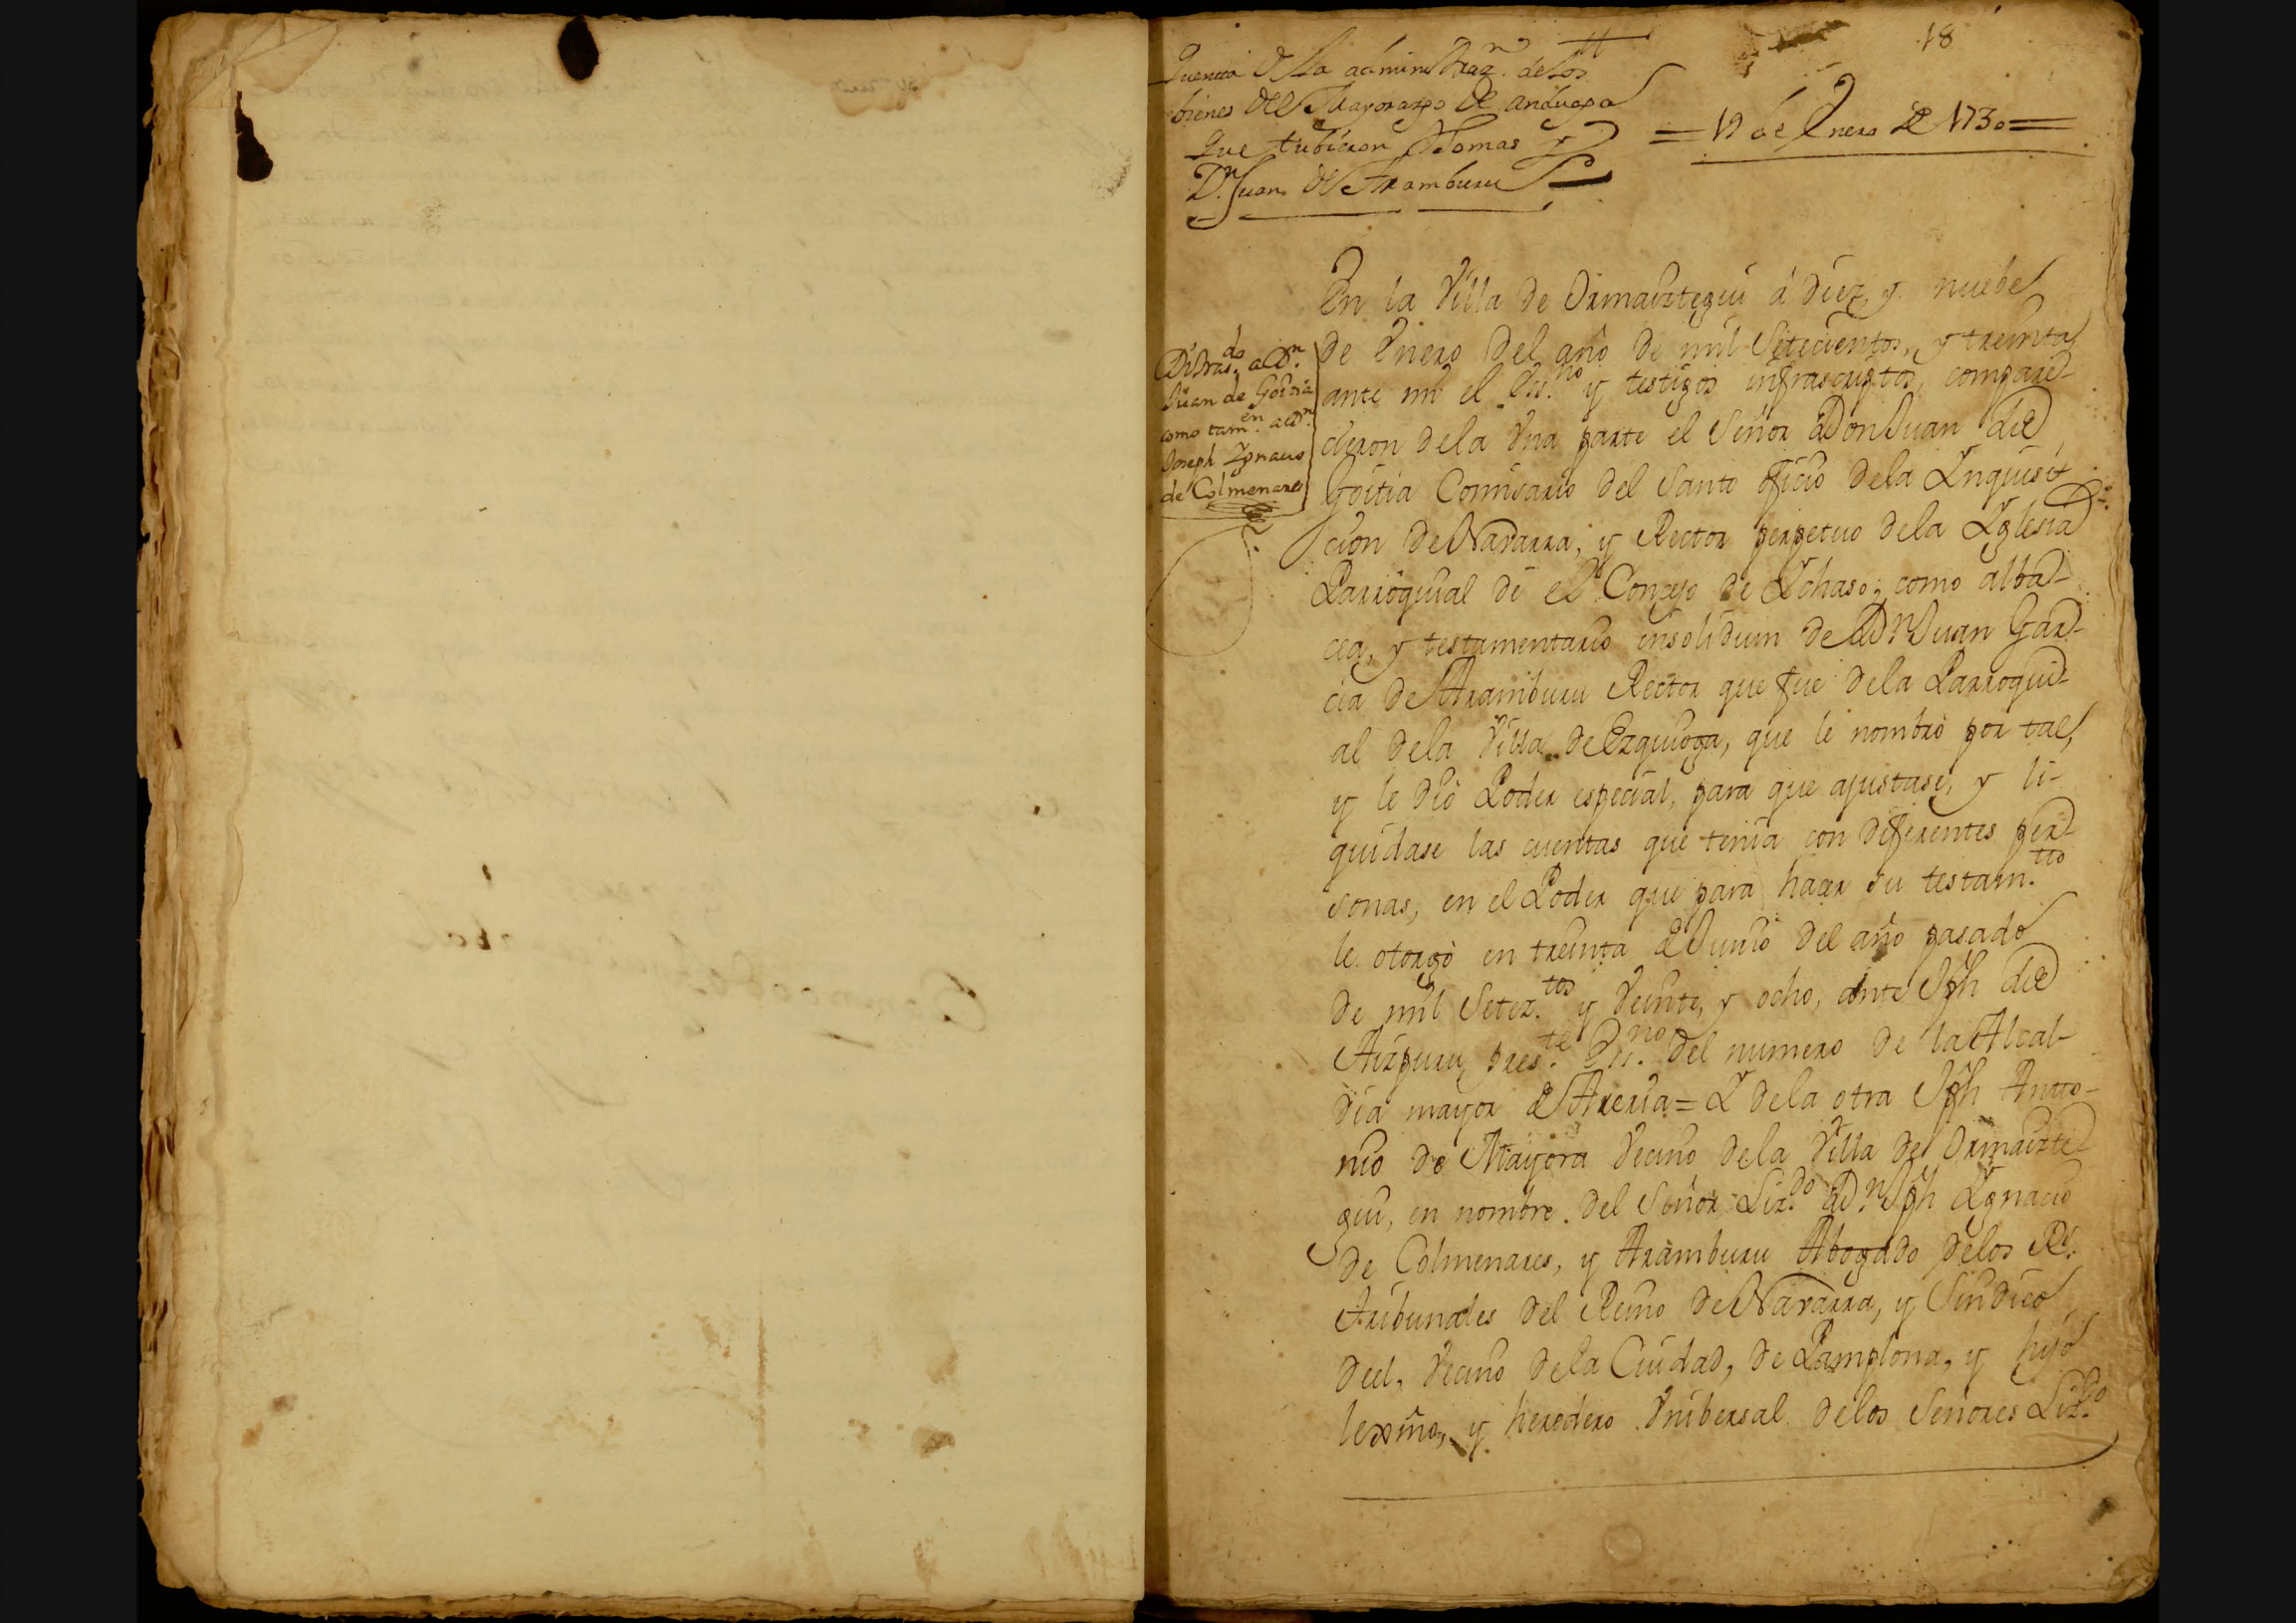 18
Quenta de la administraz.n de los
bienes del Mayorazgo de anduaga
Que tubieron Thomas y
D.n Juan de Aramburu
= 19 de Enero de 1730 =
En la Villa de Ormaiztegui á diez, y nuebe
de Enero del año de mil Setecientos, y treinta
ante mi el Ess.no y testigos infrascriptos, compare-
cieron dela Vna parte el Señor Don Juan de
Goitia Comisario del Santo oficio dela Inquisi-
cion de Navarra, y Rector perpetuo dela Yglesia
Parroquial de el Conzejo de Ychaso, como alba-
cea, y testamentario insolidum de Dn Juan Gar-
cia de Aramburu Rector que fue dela Parroqui-
al dela Villa de Ezquioga, que le nombró por tal,
y le dió Poder especial, para que ajustase, y li-
quidase las cuentas que tenia con diferentes per-
sonas, en el Poder que para hacer su testam.to
le otorgó en treinta de Junio del año pasado
de mil Setez.tos y Veinte, y ocho, ante Jph de
Aizpuru pres.te Ess.no del numero de la Alcal-
dia mayor de Areria = Y dela otra Jph Anto-
nio de Mayora Vecino dela Villa de Ormaizte
gui, en nombre del Señor Liz.do D.n Jph Ygnacio
de Colmenares, y Aramburu Abogado delos R.s
tribunales del Reino de Navarra, y Sindico
de el, Vecino dela Ciudad, de Pamplona, y hijo
lexmo, y heredero Vnibersal delos Señores Liz.do
Di tras.do a D.n
Juan de Goitia
como tam.en a D.n
Joseph Ygnacio
de Colmenares